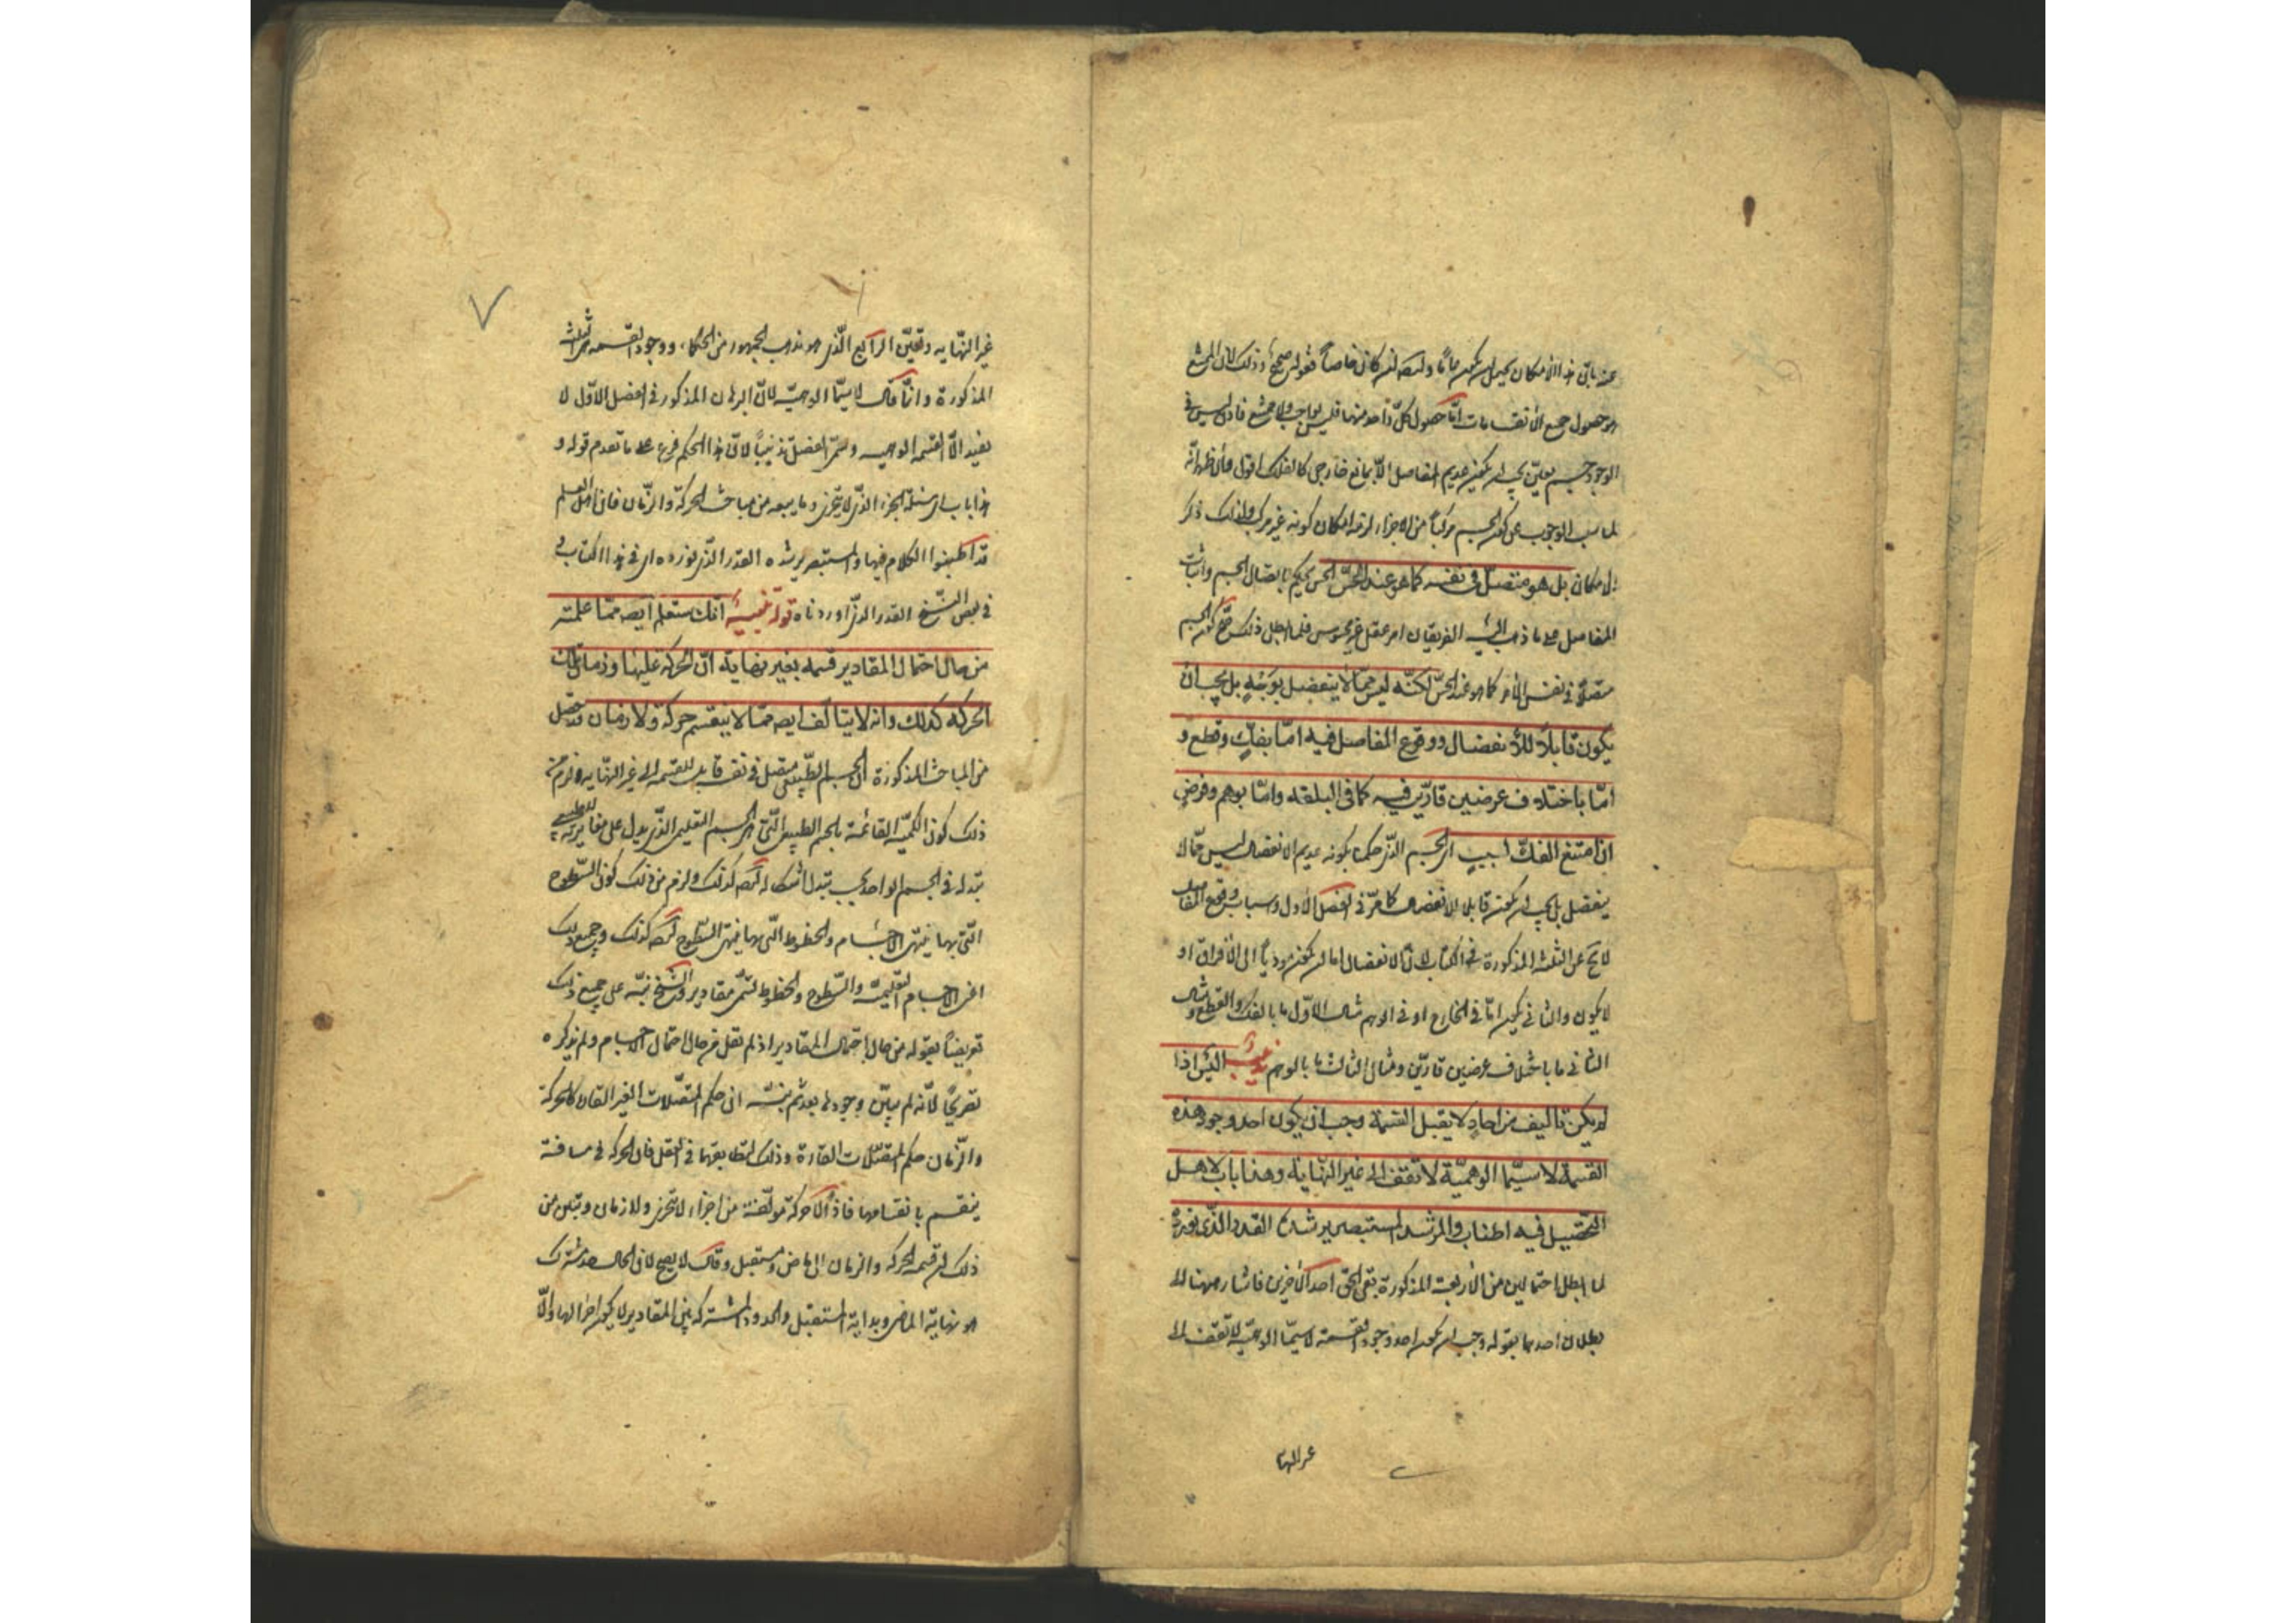 عنه باق هذا الامكان يحتمل ان يكون عاما وان كان خاصا فقوله صحيح وذلك لان الممتنع
هو حصول جميع الانقسامات اما حصول كل واحد منها فليس بواجب ولا ممتنع فاذن ليس في
الوجود جسم يجب ان يكون عديم المفاصل الا بمانع خارجي كالفلك اقول والاظهر انه
لما سلب الوجوب عن كون الجسم مركبا من الاجزاء لزمه امكان كونه غير مركب ولذلك ذكر
الامكان بل هو متصل في نفسه كما هو عند الحس الحس يحكم باتصال الجسم واثبات
المفاصل على ما ذهب اليه الفريقان امر عقلي غير محسوس فلما ابطل ذلك صح كون الجسم
متصلا في نفس الامر كما هو عند الحس لكنه ليس مما لا ينفصل بوجه بل يجب ان
يكون قابلا للانفصال ووقوع المفاصل فيه اما بفك وقطع و
اما باختلاف عرضين قارين فيه كما في البلقة واما بوهم وفرض
ان امتنع الفك لسبب اي الجسم الذي حكمنا بكونه عديم الانفصال ليس مما لا
ينفصل بل يجب ان يكون قابلا للانفصال كما مر في الفصل الاول واسباب وقوع المفاصل
لا يخ عن الثلثة المذكورة في الكتاب لان الانفصال اما ان يكون مودّيا الى الافتراق او
لا يكون والثاني يكون اما في الخارج او في الوهم مثال الاول ما بالفك والقطع ومثال
الثاني ما باختلاف عرضين قارين ومثال الثالث ما بالوهم تذنيب اليس اذا
لم يكن تاليف من احاد لا يقبل القسمة وجب ان يكون احد وجوه هذه
القسمة لا سيما الوهمية لا تقف الى غير النهاية وهذا باب لاهل
التحصيل فيه اطناب والمرشد المستبصر يرشده القدر الذي نورده
لما ابطل احتمالين من الاربعة المذكورة بقي الحق احد الاخرين فاشار ههنا الى
بطلان احدهما بقوله وجب ان يكون احد وجوه القسمة لا سيما الوهمية لا تقف الى
غير النهاية
٧
غير النهاية وتعين الرابع الذي هو مذهب الجمهور من الحكماء ووجوه القسمة هي الثلثة
المذكورة وانما قال لا سيما الوهمية لان البرهان المذكور في الفصل الاول لا
يفيد الا القسمة الوهمية وسمى الفصل تذنيبا لان هذا الحكم فرع على ما تقدم قوله و
هذا باب اي مسئلة الجزء الذي لا يتجزى وما يتبعه من مباحث الحركة والزمان فان اهل العلم
قد اطنبوا الكلام فيها والمستبصر يرشده القدر الذي نورده اي في هذا الكتاب و
في بعض النسخ القدر الذي اوردناه قوله تنبيه انك ستعلم ايضا مما علمته
من حال احتمال المقادير قسمة بغير نهاية ان الحركة عليها وزمان تلك
الحركة كذلك وانه لا يتالف ايضا مما لا ينقسم حركة ولا زمان قد حصل
من المباحث المذكورة ان الجسم الطبيعي متصل في نفسه قابل للقسمة الى غير النهاية ولزم من
ذلك كون الكمية القائمة بالجسم الطبيعي التي هي الجسم التعليمي الذي يدل على مغايرته للطبيعي
تبدله في الجسم الواحد بحسب تبدل اشكاله ايضا كذلك ولزم من ذلك كون السطوح
التي بها ينتهي الاجسام والخطوط التي بها ينتهي السطوح ايضا كذلك وجميع تلك
اعني الاجسام التعليمية والسطوح والخطوط تسمى مقادير والشيخ نبه على جميع ذلك
تعريضا بقوله من حال احتمال المقادير اذ لم يقل من حال احتمال الاجسام ولم يذكره
تصريحا لانه لم يبين وجودها بعد ثم نبه ان حكم المتصلات الغير القارة كالحركة
والزمان حكم المتصلات القارة وذلك لتطابقها في العقل فان الحركة في مسافة
ينقسم بانقسامها فاذن لا حركة مؤلفة من اجزاء لا يتجزى ولا زمان وتبين من
ذلك ان قسمة الحركة والزمان الى ماض ومستقبل وحال لا يصح لان الحال حد مشترك
هو نهاية الماضي وبداية المستقبل والحدود المشتركة بين المقادير لا يكون اجزاء لها والا